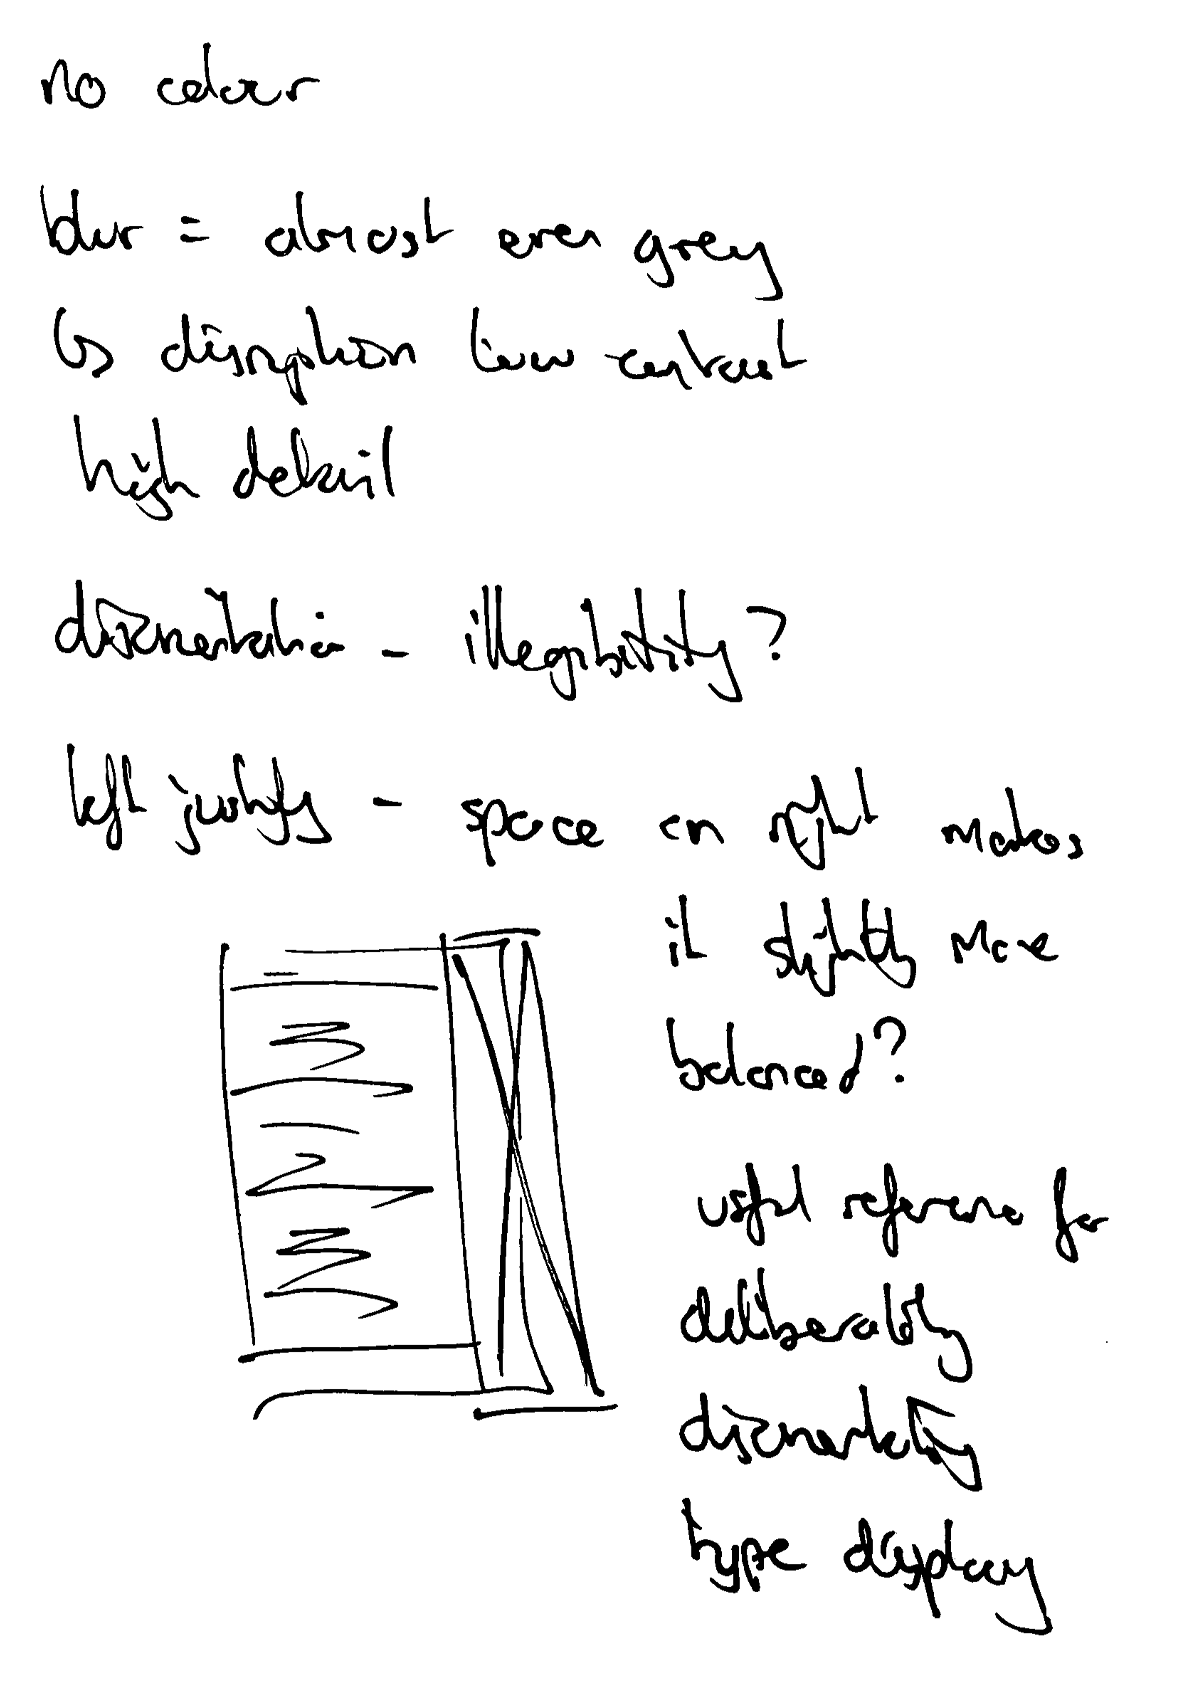 no colour
blur = almost even grey
↳ disruption low contrast
high detail
disorientation – illegibility?
left justify – space on right makes
it slightly more
balanced?
useful reference for
deliberately
disorientating
type display